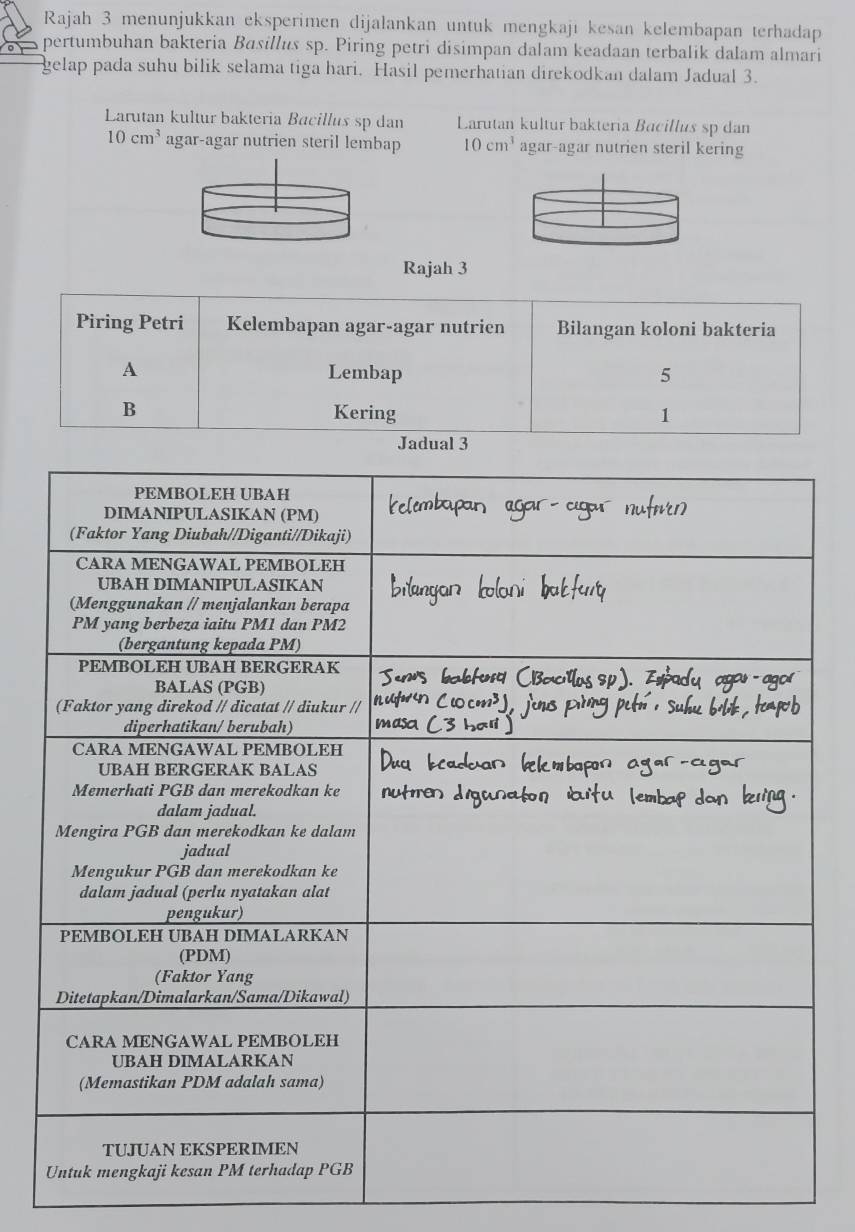 Rajah 3 menunjukkan eksperimen dijalankan untuk mengkaji kesan kelembapan terhadap
pertumbuhan bakteria Basillus sp. Piring petri disimpan dalam keadaan terbalik dalam almari
gelap pada suhu bilik selama tiga hari. Hasil pemerhatian direkodkan dalam Jadual 3.
Larutan kultur bakteria Bacillus sp dan
10 cm³ agar-agar nutrien steril lembap
Larutan kultur bakteria Bacillus sp dan
10 cm³ agar-agar nutrien steril kering
Rajah 3
Piring Petri Kelembapan agar-agar nutrien Bilangan koloni bakteria
A Lembap 5
B Kering 1
Jadual 3
PEMBOLEH UBAH
DIMANIPULASIKAN (PM)
(Faktor Yang Diubah//Diganti//Dikaji)
kelembapan agar-agar nutrien
CARA MENGAWAL PEMBOLEH
UBAH DIMANIPULASIKAN
(Menggunakan // menjalankan berapa
PM yang berbeza iaitu PM1 dan PM2
(bergantung kepada PM)
bilangan koloni bakteria
PEMBOLEH UBAH BERGERAK
BALAS (PGB)
(Faktor yang direkod // dicatat // diukur //
diperhatikan/ berubah)
Jenis bakteria (Bacillus sp). agar-agar
nutrien (10cm³), jenis piring petri, suhu bilik, tempoh
masa (3 hari)
CARA MENGAWAL PEMBOLEH
UBAH BERGERAK BALAS
Memerhati PGB dan merekodkan ke
dalam jadual.
Mengira PGB dan merekodkan ke dalam
jadual
Mengukur PGB dan merekodkan ke
dalam jadual (perlu nyatakan alat
pengukur)
Dua keadaan kelembapan agar-agar
nutrien digunakan iaitu lembap dan kering.
PEMBOLEH UBAH DIMALARKAN
(PDM)
(Faktor Yang
Ditetapkan/Dimalarkan/Sama/Dikawal)
CARA MENGAWAL PEMBOLEH
UBAH DIMALARKAN
(Memastikan PDM adalah sama)
TUJUAN EKSPERIMEN
Untuk mengkaji kesan PM terhadap PGB